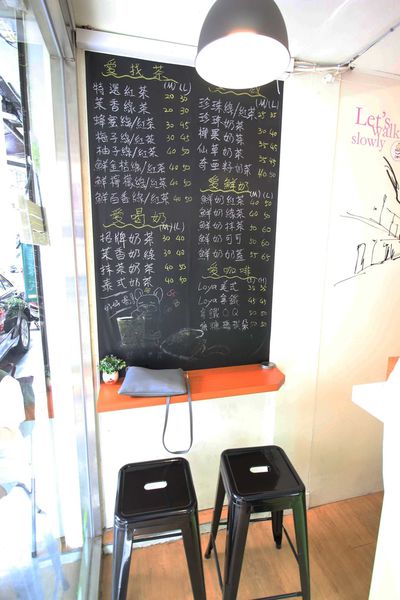 愛找茶
(M) (L)
特選紅茶 20 30
茉香綠茶 20 30
蜂蜜綠/紅茶 30 45
梅子綠/紅茶 30 45
柚子綠/紅茶 40 50
鮮金桔綠/紅茶 40 50
鮮梅檬綠/紅茶 40 50
鮮百香綠/紅茶 40 50
愛喝奶
(M) (L)
招牌奶茶 30 40
茉香奶綠 30 40
抹茶奶茶 40 50
泰式奶茶 40 50
(M) (L)
珍珠綠/紅茶 25 35
珍珠奶茶
椰果奶茶
仙草奶茶 35 45
奇亞籽奶茶
愛鮮奶
(M) (L)
鮮奶紅茶 40 50
鮮奶綠茶 40 50
鮮奶抹茶 50 60
鮮奶可可 50 60
鮮奶奶蓋 55 65
愛咖啡
Loya美式
Loya拿鐵 45
拿鐵QQ 50
焦糖瑪奇朵 50
Let's
walk
slowly